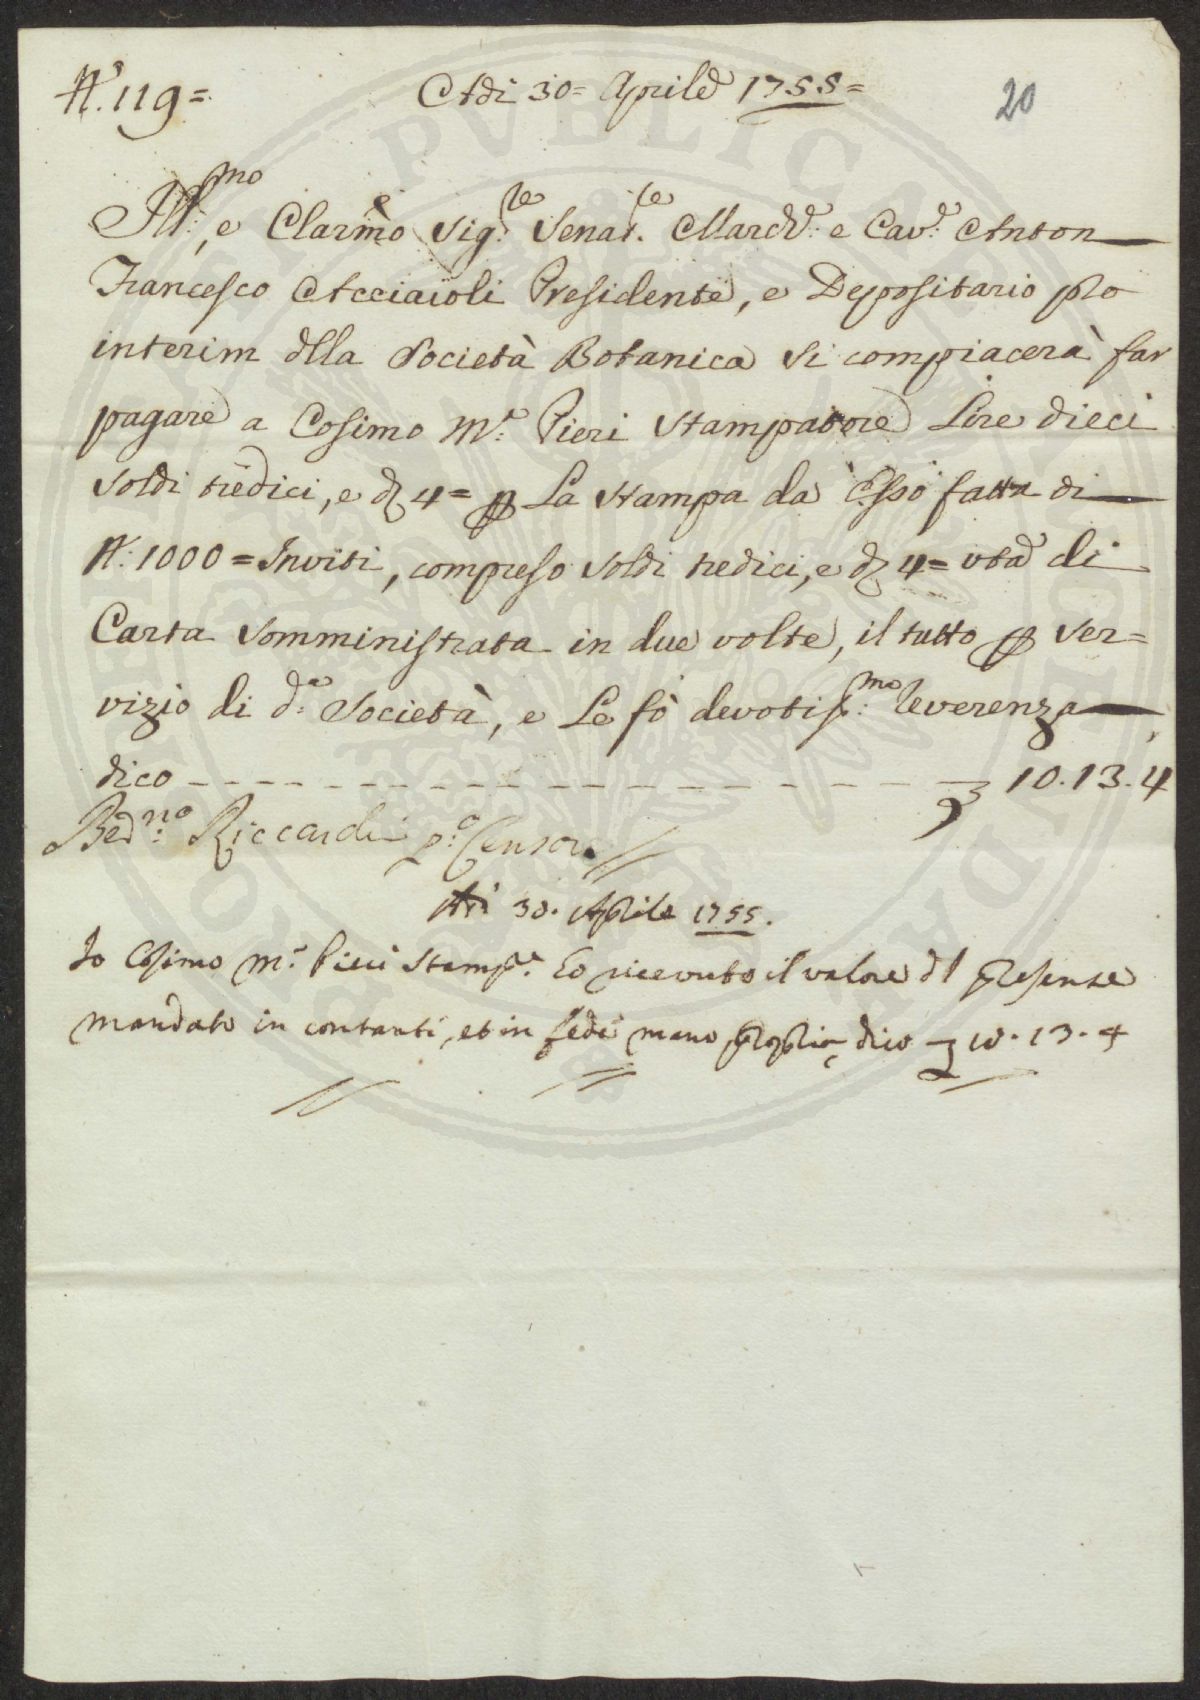 N.° 119=
Adi 30= Aprile 1755=
20
Ill:mo, e Clarmo Sig:re Senat.re March:e e Cav:e Anton
Francesco Acciaioli Presidente, e Depositario pro
interim dlla Società Botanica si compiacerà far
pagare a Cosimo M:a Pieri Stampatore Lire dieci
soldi tredici, e d 4= p La stampa da Esso fatta di
N.° 1000= Inviti, compreso soldi tredici, e d 4= vta di
Carta somministrata in due volte, il tutto p ser=
vizio di d:a Società, e Le fò devotiss:mo reverenza
dico 10.13.4
Bed:no Riccardi p:o Censore
Adi 30. Aprile 1755.
Io Cosimo M:a Pieri Stamp:e Eo ricevuto il valore dl presente
mandato in contanti, et in fede mano propria dico 10.13.4